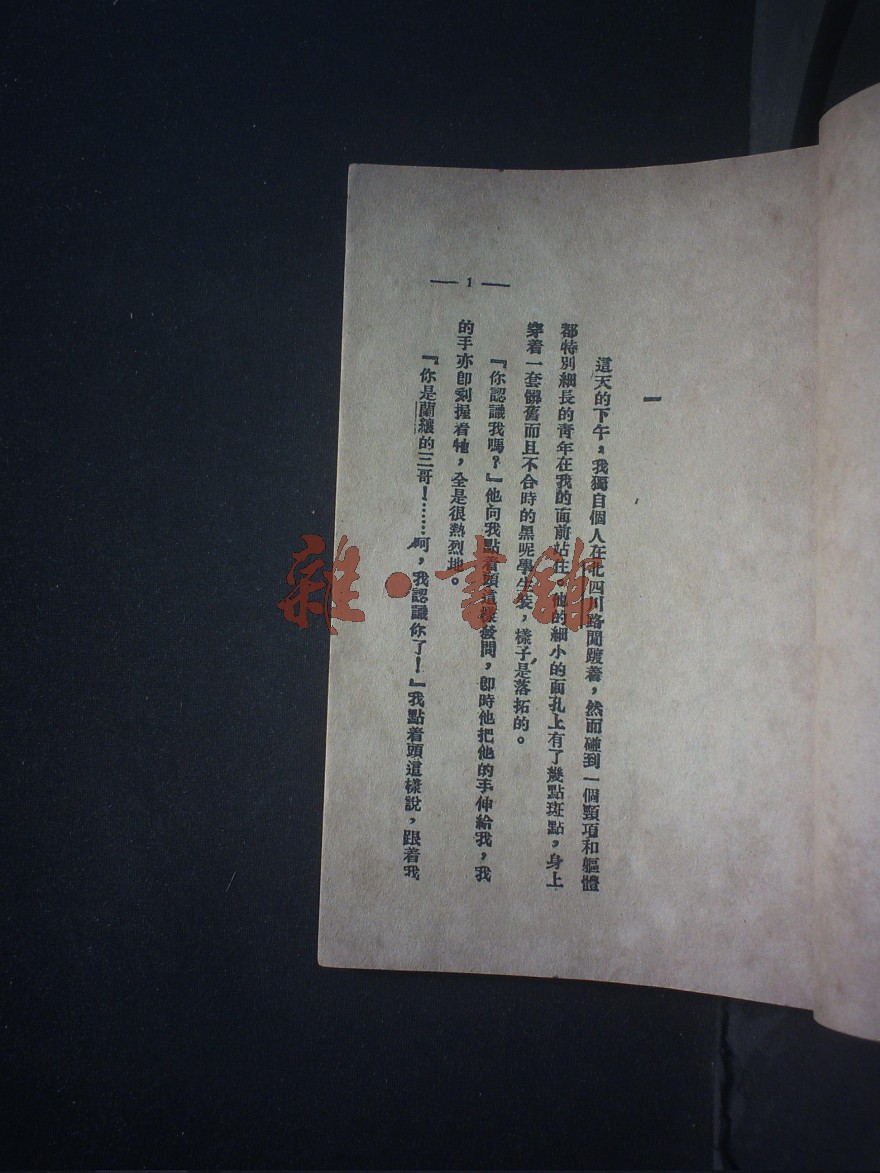 一
這天的下午，我獨自個人在北四川路閒踱着，然而碰到一個頸項和軀體
都特別細長的青年在我的面前站住，他的細小的面孔上有了幾點斑點，身上
穿着一套髒舊而且不合時的黑呢學生裝，樣子是落拓的。
『你認識我嗎？』他向我點着頭這樣發問，卽時他把他的手伸給我，我
的手亦卽刻握着牠，全是很熱烈地。
『你是蘭纕的三哥！……呵，我認識你了！』我點着頭這樣說，跟着我
— 1 —
雜·書館